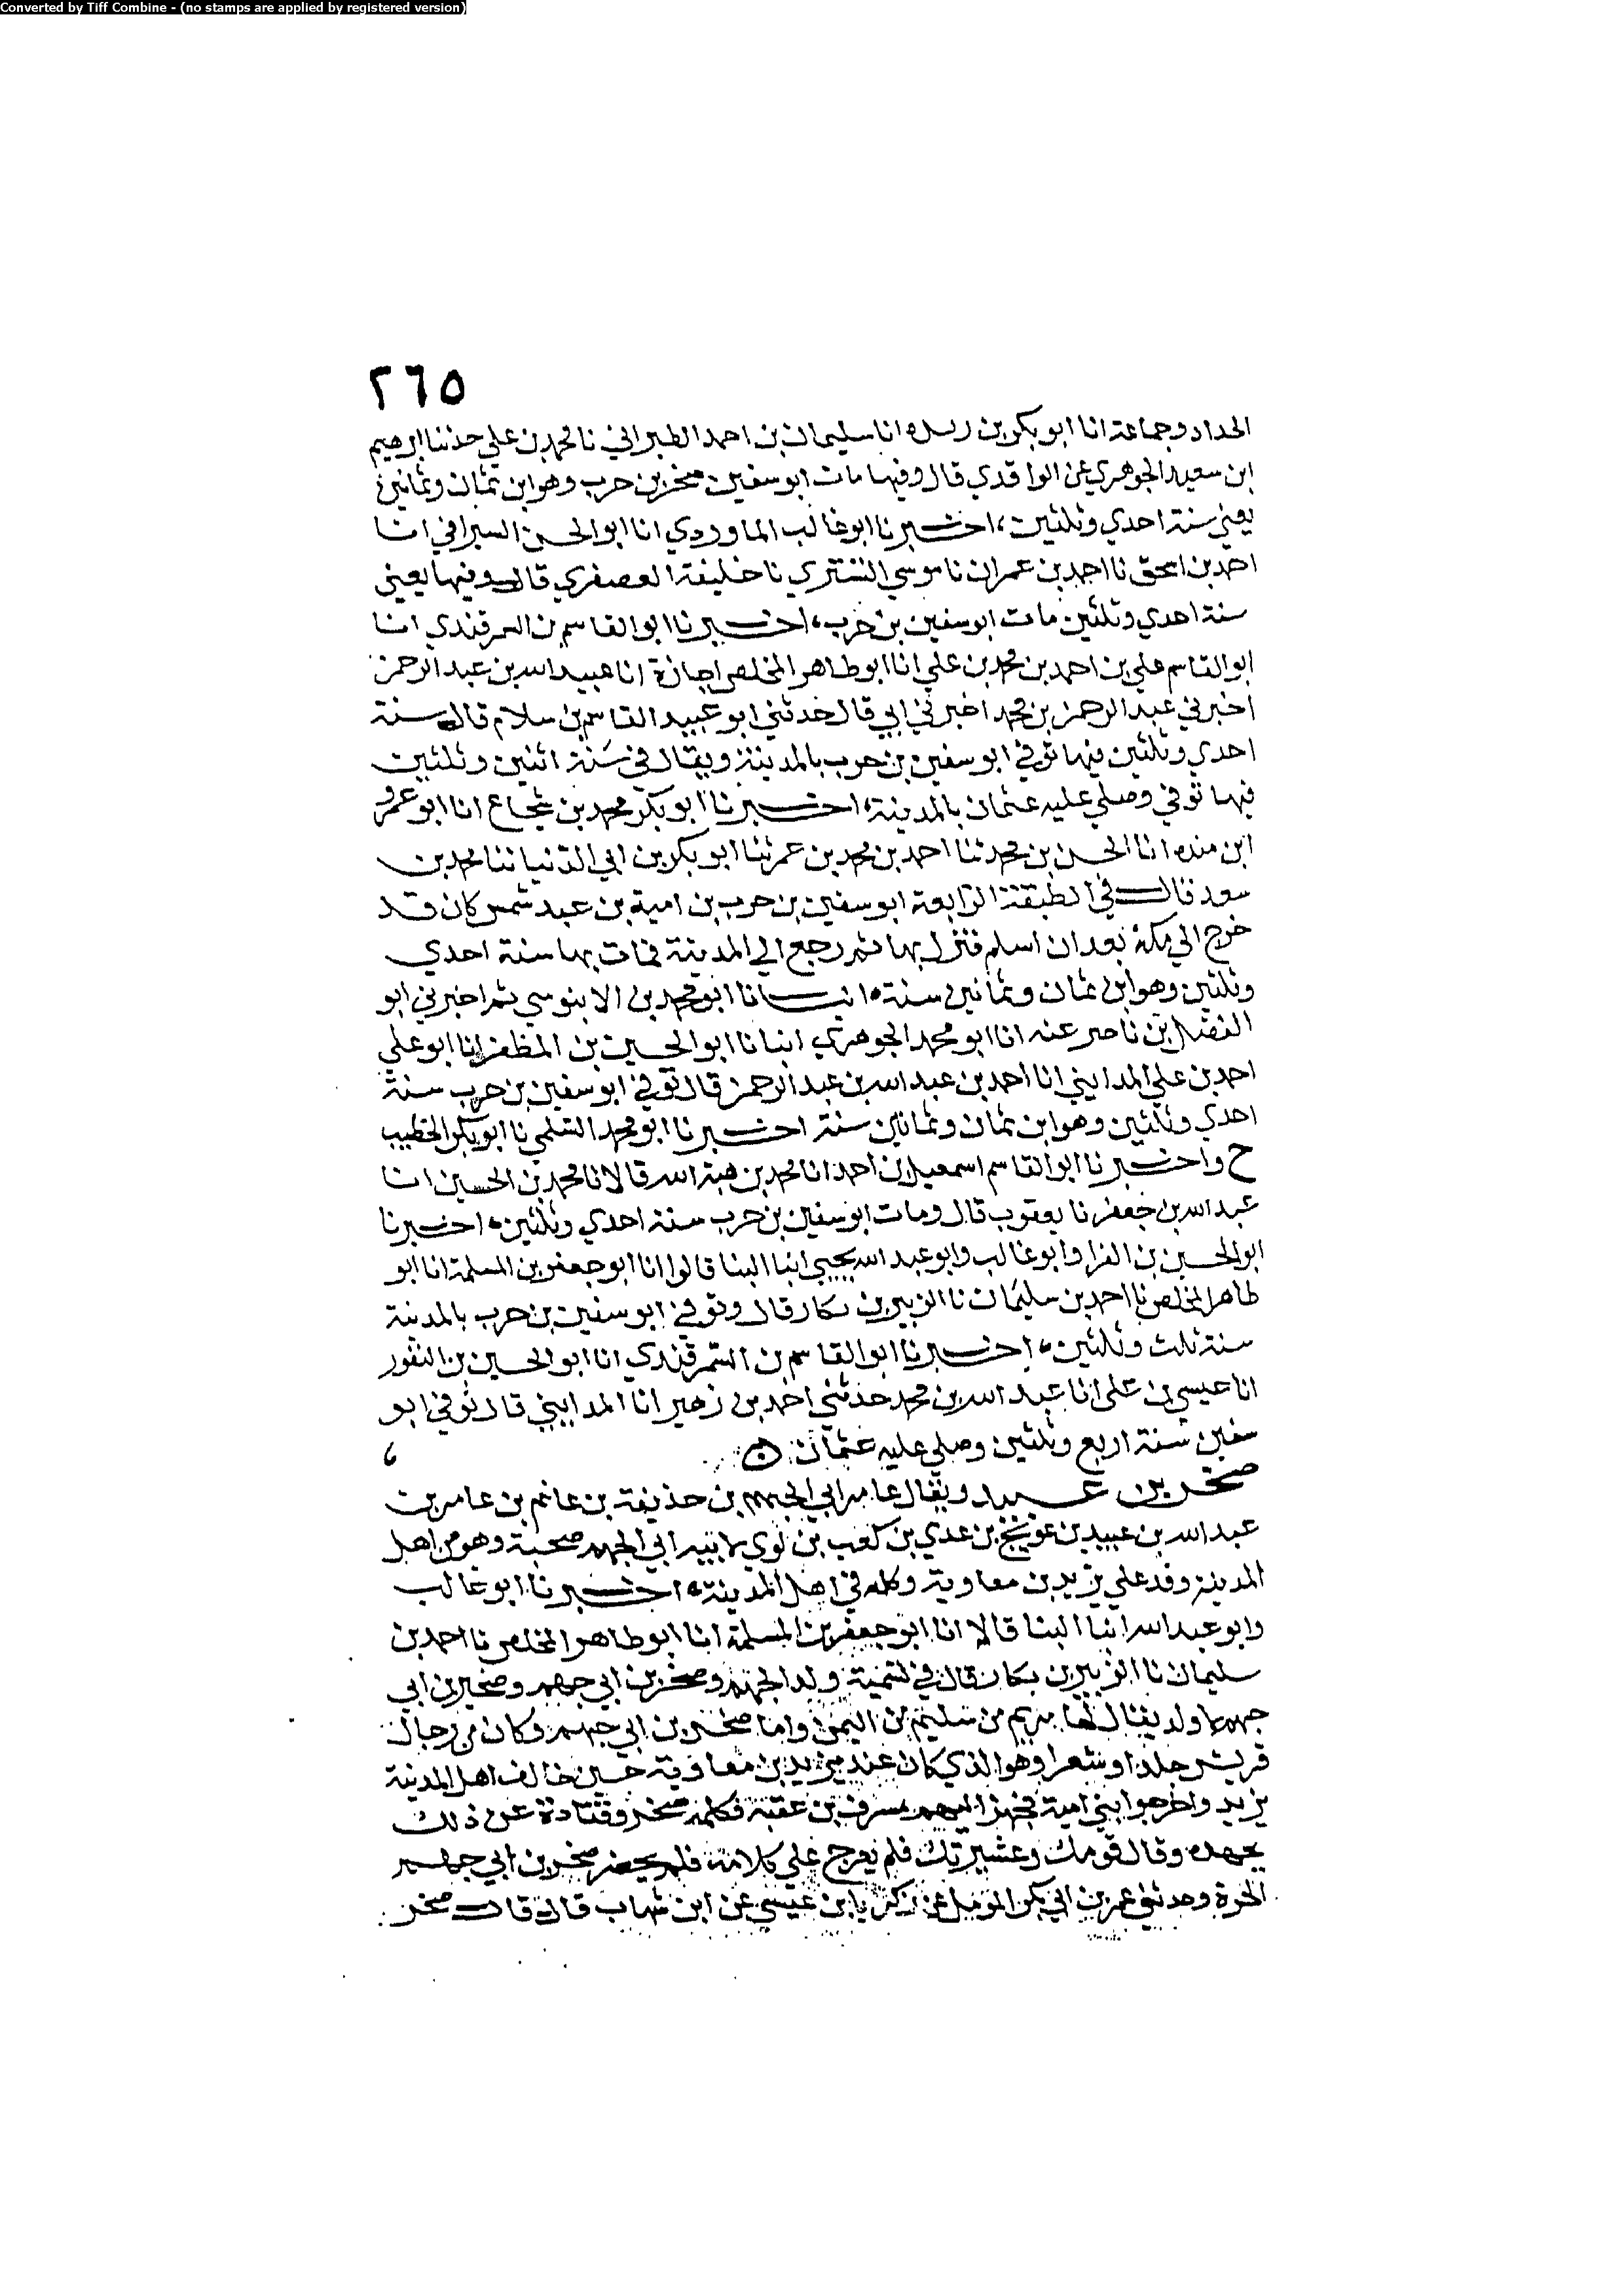 Converted by Tiff Combine - (no stamps are applied by registered version)
٢٦٥
الحداد وجماعة انا ابو بكر بن ريذه انا سليمان بن احمد الطبراني نا محمد بن علي حدثنا ابرهيم
ابن سعيد الجوهري عن الواقدي قال وفيها مات ابو سفين صخر بن حرب وهو ابن ثمان وثمانين
يعني سنة احدي وثلثين، اخبرنا ابو غالب الماوردي انا ابو الحسن السيرافي انا
احمد بن اسحق نا احمد بن عمران نا موسي التستري نا خليفة العصفري قال وفيها يعني
سنة احدي وثلثين مات ابو سفين بن حرب، اخبرنا ابو القاسم بن السمرقندي انا
ابو القاسم علي بن احمد بن محمد بن علي انا ابو طاهر المخلص اجازة انا عبيد الله بن عبد الرحمن
اخبرني عبد الرحمن بن محمد اخبرني ابي قال حدثني ابو عبيد القاسم بن سلام قال سنة
احدي وثلثين فيها توفي ابو سفين بن حرب بالمدينة ويقال في سنة اثنين وثلثين
فيها توفي وصلي عليه عثمان بالمدينة، اخبرنا ابو بكر محمد بن شجاع انا ابو عمرو
ابن منده انا الحسن بن محمد ثنا احمد بن محمد بن عمر ثنا ابو بكر بن ابي الدنيا ثنا محمد بن
سعد قال في الطبقة الرابعة ابو سفين بن حرب بن امية بن عبد شمس كان قد
خرج الي مكة بعد ان اسلم فنزل بها ثم رجع الي المدينة فمات بها سنة احدي
وثلثين وهو ابن ثمان وثمانين سنة، انبانا ابو محمد بن الابنوسي ثم اخبرني ابو
الفضل بن ناصر عنه انا ابو محمد الجوهري انبانا ابو الحسين بن المظفر انا ابو علي
احمد بن علي المدايني انا احمد بن عبد الله بن عبد الرحمن قال توفي ابو سفين بن حرب سنة
احدي وثلثين وهو ابن ثمان وثمانين سنة اخبرنا ابو محمد السلمي نا ابو بكر الخطيب
ح واخبرنا ابو القاسم اسمعيل بن احمد انا محمد بن هبة الله قالا نا محمد بن الحسين انا
عبد الله بن جعفر نا يعقوب قال ومات ابو سفين بن حرب سنة احدي وثلثين، اخبرنا
ابو الحسين بن الفرا وابو غالب وابو عبد الله يحيي ابنا البنا قالوا انا ابو جعفر بن المسلمة انا ابو
طاهر المخلص نا احمد بن سليمان نا الزبير بن بكار قال وتوفي ابو سفين بن حرب بالمدينة
سنة ثلث وثلثين، اخبرنا ابو القاسم بن السمرقندي انا ابو الحسين بن النقور
انا عيسي بن علي انا عبد الله بن محمد حدثني احمد بن زهير انا المدايني قال توفي ابو
سفين سنة اربع وثلثين وصلي عليه عثمان
صخر بن عبيد ويقال عامر ابي الجهم بن حذيفة بن غانم بن عامر بن
عبد الله بن عبيد بن عويج بن عدي بن كعب بن لوي لابيه ابي الجهم صحبة وهو من اهل
المدينة وفد علي يزيد بن معاوية وكلمه في اهل المدينة، اخبرنا ابو غالب
وابو عبد الله ابنا البنا قالا انا ابو جعفر بن المسلمة انا ابو طاهر المخلص نا احمد بن
سليمان نا الزبير بن بكار قال في تسمية ولد الجهم وصخر بن ابي جهم وصخير بن ابي
جهم ولد يقال لها مريم من سليم من اليمن واما صخر بن ابي جهم وكان من رجال
قريش جلدا وشعرا وهو الذي كان عند يزيد بن معاوية حين خالف اهل المدينة
يزيد واخرجوا بني امية فجهز اليهم مسرف بن عقبة فكلمه صخر وقتادة عن ذلك
بجهده وقال قومك وعشيرتك فلم يعرج علي كلامه فلم يحضر صخر بن ابي جهم
الحرة وحدثني عمر بن ابي بكر الموملي عن زكريا بن عيسي عن ابن شهاب قال قال صخر